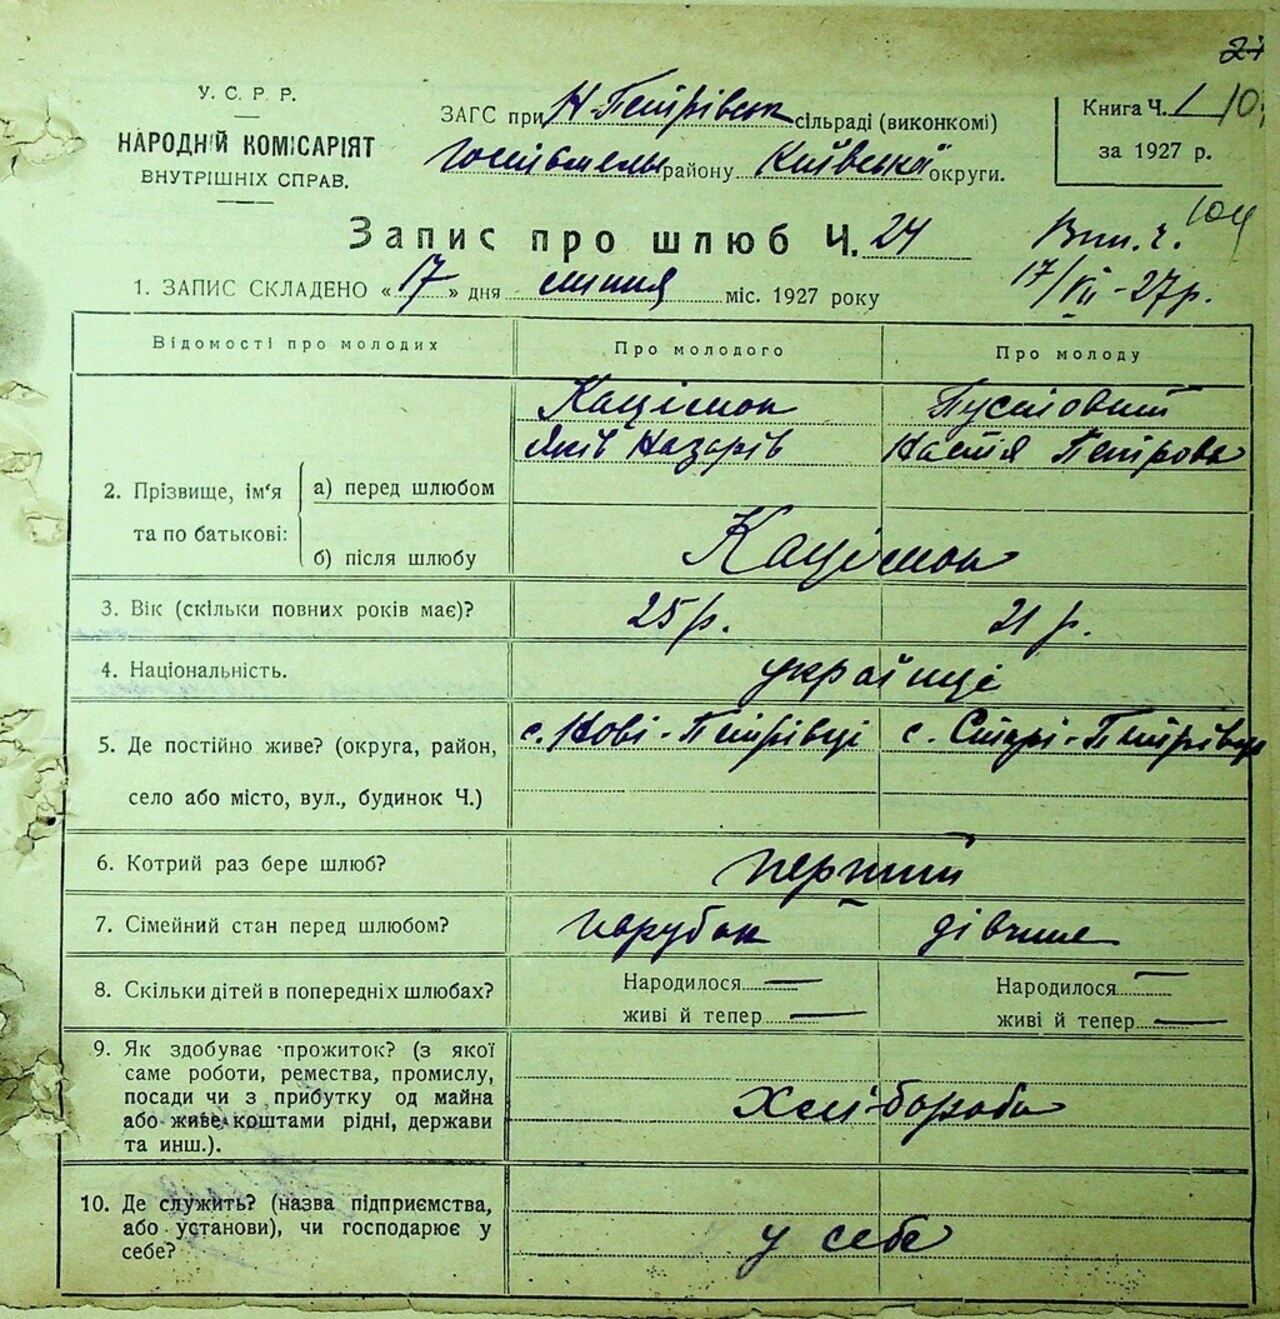 24
У. С. Р. Р.
НАРОДНІЙ КОМІСАРІЯТ
ВНУТРІШНІХ СПРАВ.
ЗАГС при Н-Петрівськ сільраді (виконкомі)
Гостомель району Київської округи.
Книга Ч. 1 10
за 1927 р.
Запис про шлюб Ч. 24
Вип. ч. 104
17/VII-27р.
1. ЗАПИС СКЛАДЕНО «17» дня липня міс. 1927 року
Відомості про молодих
Про молодого
Про молоду
2. Прізвище, ім'я та по батькові:
а) перед шлюбом
Кацімон
Яків Назарів
Пустовит
Настя Петрова
б) після шлюбу
Кацімон
3. Вік (скільки повних років має)?
25 р.
21 р.
4. Національність.
українці
5. Де постійно живе? (округа, район,
село або місто, вул., будинок Ч.)
с. Нові-Петрівці
с. Старі-Петрівці
6. Котрий раз бере шлюб?
перший
7. Сімейний стан перед шлюбом?
парубок
дівчина
8. Скільки дітей в попередніх шлюбах?
Народилося —
живі й тепер —
Народилося —
живі й тепер —
9. Як здобуває прожиток? (з якої
саме роботи, ремества, промислу,
посади чи з прибутку од майна
або живе коштами рідні, держави
та инш.).
Хліборобы
10. Де служить? (назва підприємства,
або установи), чи господарює у
себе?
у себе